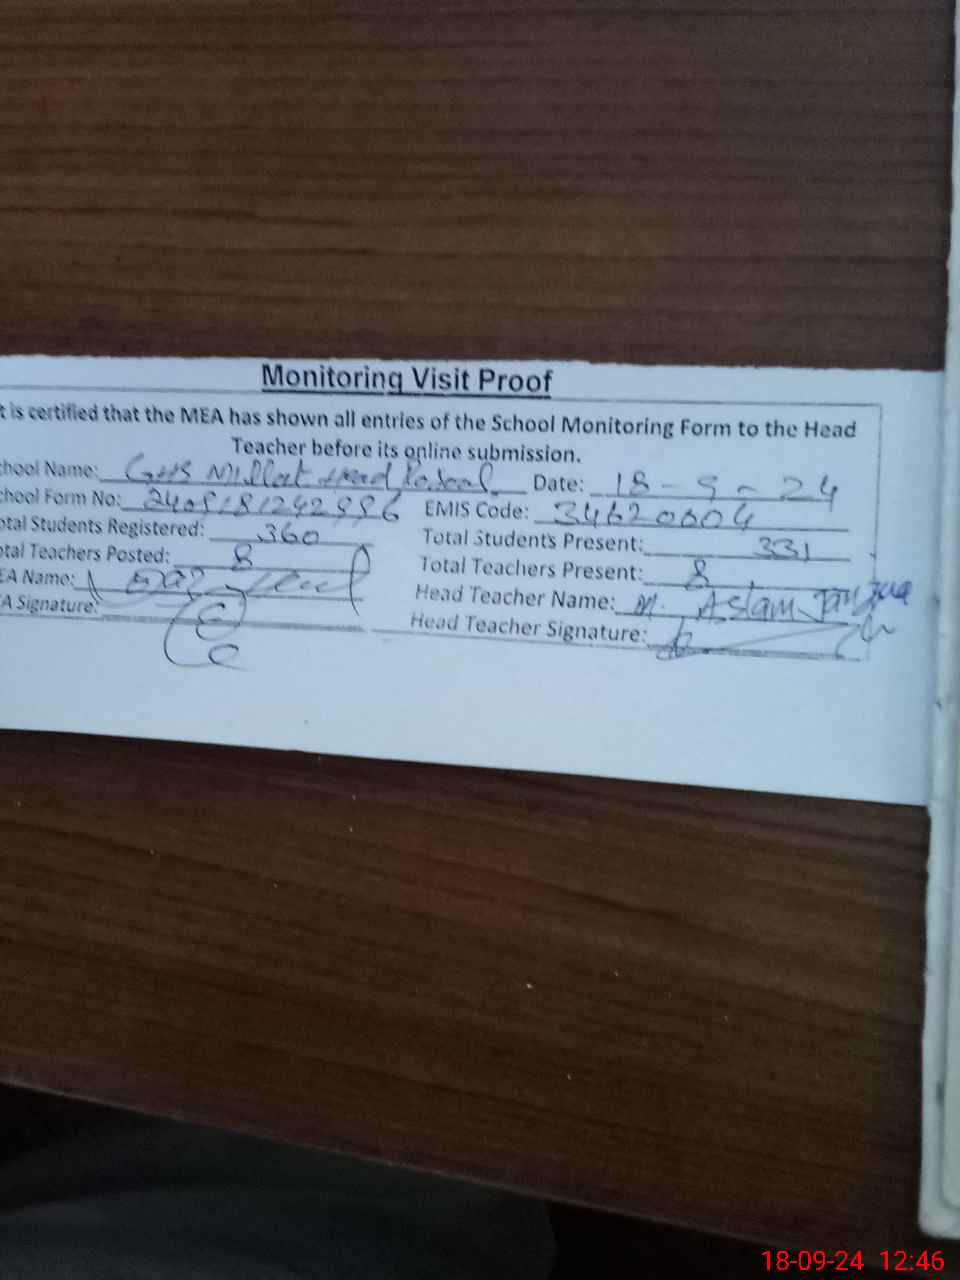 Monitoring Visit Proof
t is certified that the MEA has shown all entries of the School Monitoring Form to the Head
Teacher before its online submission.
chool Name: GHS Millat Date: 18-9-24
chool Form No: EMIS Code: 34620604
otal Students Registered: 360 Total Students Present: 331
otal Teachers Posted: 8 Total Teachers Present: 8
EA Name: Head Teacher Name: M. Aslam Janjua
A Signature: Head Teacher Signature:
18-09-24 12:46